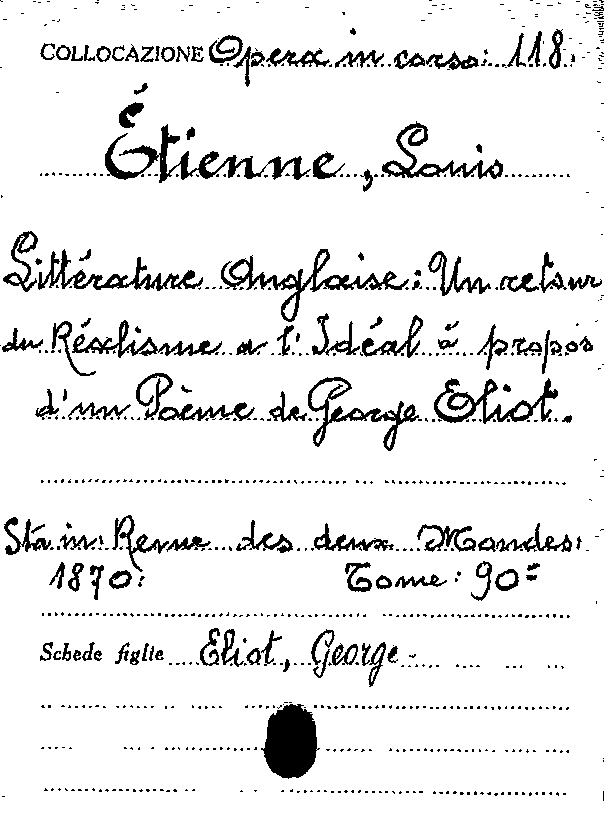 COLLOCAZIONE Opera in corso: 118.
Étienne, Louis
Littérature Anglaise: Un retour
du Réalisme a l'Idéal à propos
d'un Poème de George Eliot.
Sta in: Revue des deux Mondes:
1870: Tome: 90=
Schede figlie Eliot, George-